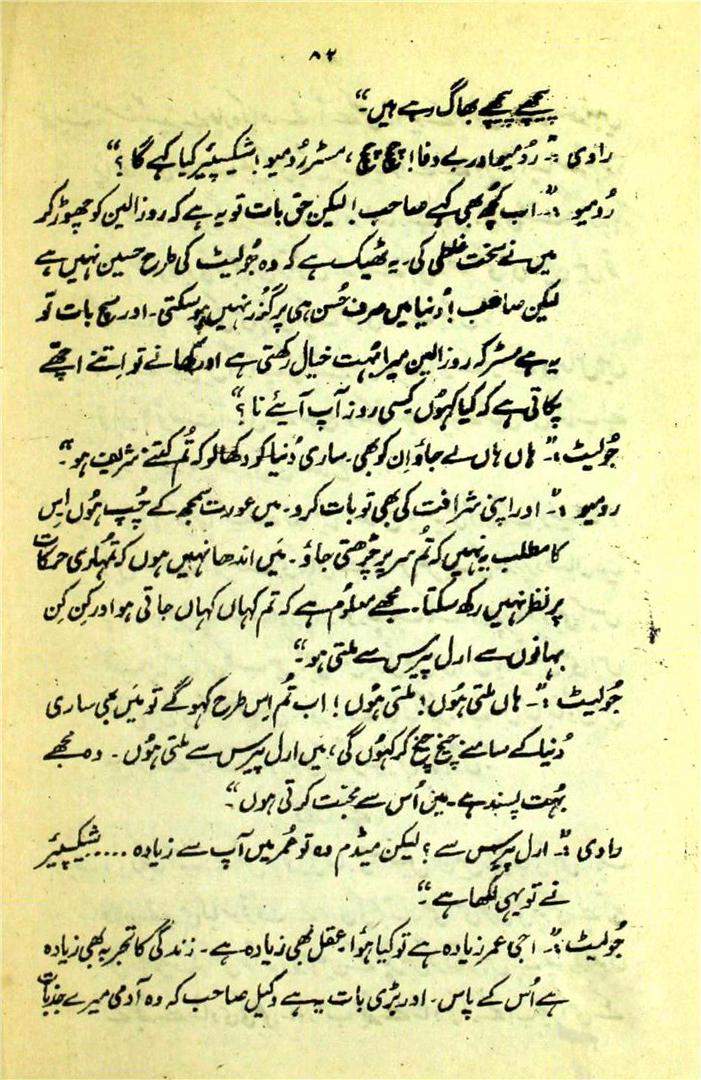 ۸۲
پیچھے پیچھے بھاگ رہے ہیں۔“
راوی :۔ رُومیو اور بے وفا! چچ چچ، مسٹر رُومیو! شیکسپیئر کیا کہے گا ؟“
رُومیو :”۔ اب کچھ بھی کہے صاحب! لیکن حق بات تو یہ ہے کہ روزالین کو چھوڑ کر
میں نے سخت غلطی کی۔ یہ ٹھیک ہے کہ وہ جُولیٹ کی طرح حسین نہیں ہے
لیکن صاحب! دُنیا میں صرف حُسن ہی پر گُزر نہیں ہوسکتی۔ اور سچ بات تو
یہ ہے مسٹر کہ روزالین میرا بہُت خیال رکھتی ہے اور کھانے تو اِتنے اچھّے
پکاتی ہے کہ کیا کہوُں کِسی روز آپ آیئے نا ؟“
جُولیٹ :”۔ ہاں ہاں لے جاؤ اِن کو بھی۔ ساری دُنیا کو دکھا لو کہ تُم کتنے شریف ہو۔“
رومیو :”۔ اور اپنی شرافت کی بھی تو بات کرو۔ میں عورت سمجھ کے چُپ ہوُں اِس
کا مطلب یہ نہیں کہ تُم سر پر چڑھتی جاؤ۔ مَیں اندھا نہیں ہوں کہ تمہاری حرکات
پر نظر نہیں رکھ سکتا۔ مجھے معلوُم ہے کہ تم کہاں کہاں جاتی ہو اور کِن کِن
بہانوں سے ارل پیرس سے ملتی ہو۔“
جُولیٹ :”۔ ہاں ملتی ہوُں! ملتی ہوُں! اب تُم اِس طرح کہو گے تو مَیں بھی ساری
دُنیا کے سامنے چیخ چیخ کر کہوُں گی، میں ارل پیرس سے ملتی ہوُں۔ وہ مجھے
بہُت پسند ہے۔ میں اُس سے محبّت کرتی ہوں۔“
راوی :”۔ ارل پیرس سے ؟ لیکن میڈم وہ تو عُمر میں آپ سے زیادہ ..... شیکسپیئر
نے تو یہی لکھا ہے۔“
جُولیٹ :”۔ اجی عمر زیادہ ہے تو کیا ہوُا۔ عقل بھی زیادہ ہے۔ زندگی کا تجربہ بھی زیادہ
ہے اُس کے پاس۔ اور بڑی بات یہ ہے وکیل صاحب کہ وہ آدمی میرے جذبات